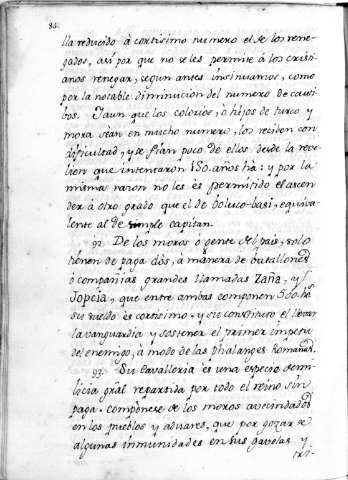 86.
lla reducido à cortisimo numero el de los rene-
gados, asi por que no se les permite à los cristi-
anos renegar, segun antes insinuamos, como
por la notable diminucion del numero de cauti-
bos. Y aun que los colorios, ò hijos de turco y
mora sean en mucho numero, los reciben con
dificultad, y se fian poco de ellos desde la reve-
lion que intentaron 150. años ha: y por la
misma razon no les es permitido el ascen-
der à otro grado que el de boluco-basi, equiva-
lente al de simple capitan.
92. De los moros ò gente del pais, solo
tienen de paga dos, à manera de batallones
ò compañias grandes llamadas Zaña, y
Jopcia, que entre ambas componen 500. hs.
su sueldo es cortisimo, y su constituto el llevar
la vanguardia y sostener el primer impetu
del enemigo, à modo de las phalanges Romanas.
93. Su Cavalleria es una especie de mi-
licia gral repartida por todo el reino sin
paga. Componese de los moros avecindados
en los pueblos y aduares, que por gozar de
algunas inmunidades en sus gavelas y
tri-